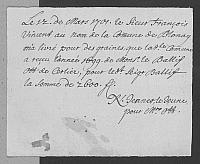 Le 12. de Mars 1701. le Sieur François
Vincent au nom de la Comune de Blonay
m'a livré pour des graines que lad.e Comune
a reçeu l'année 1699. de Mons.r le Ballif
Ott de Cerlier, pour led.t Seig.r Ballif
la somme de 2600. ff.
Jenner le Jeune,
pour Mr. Ott